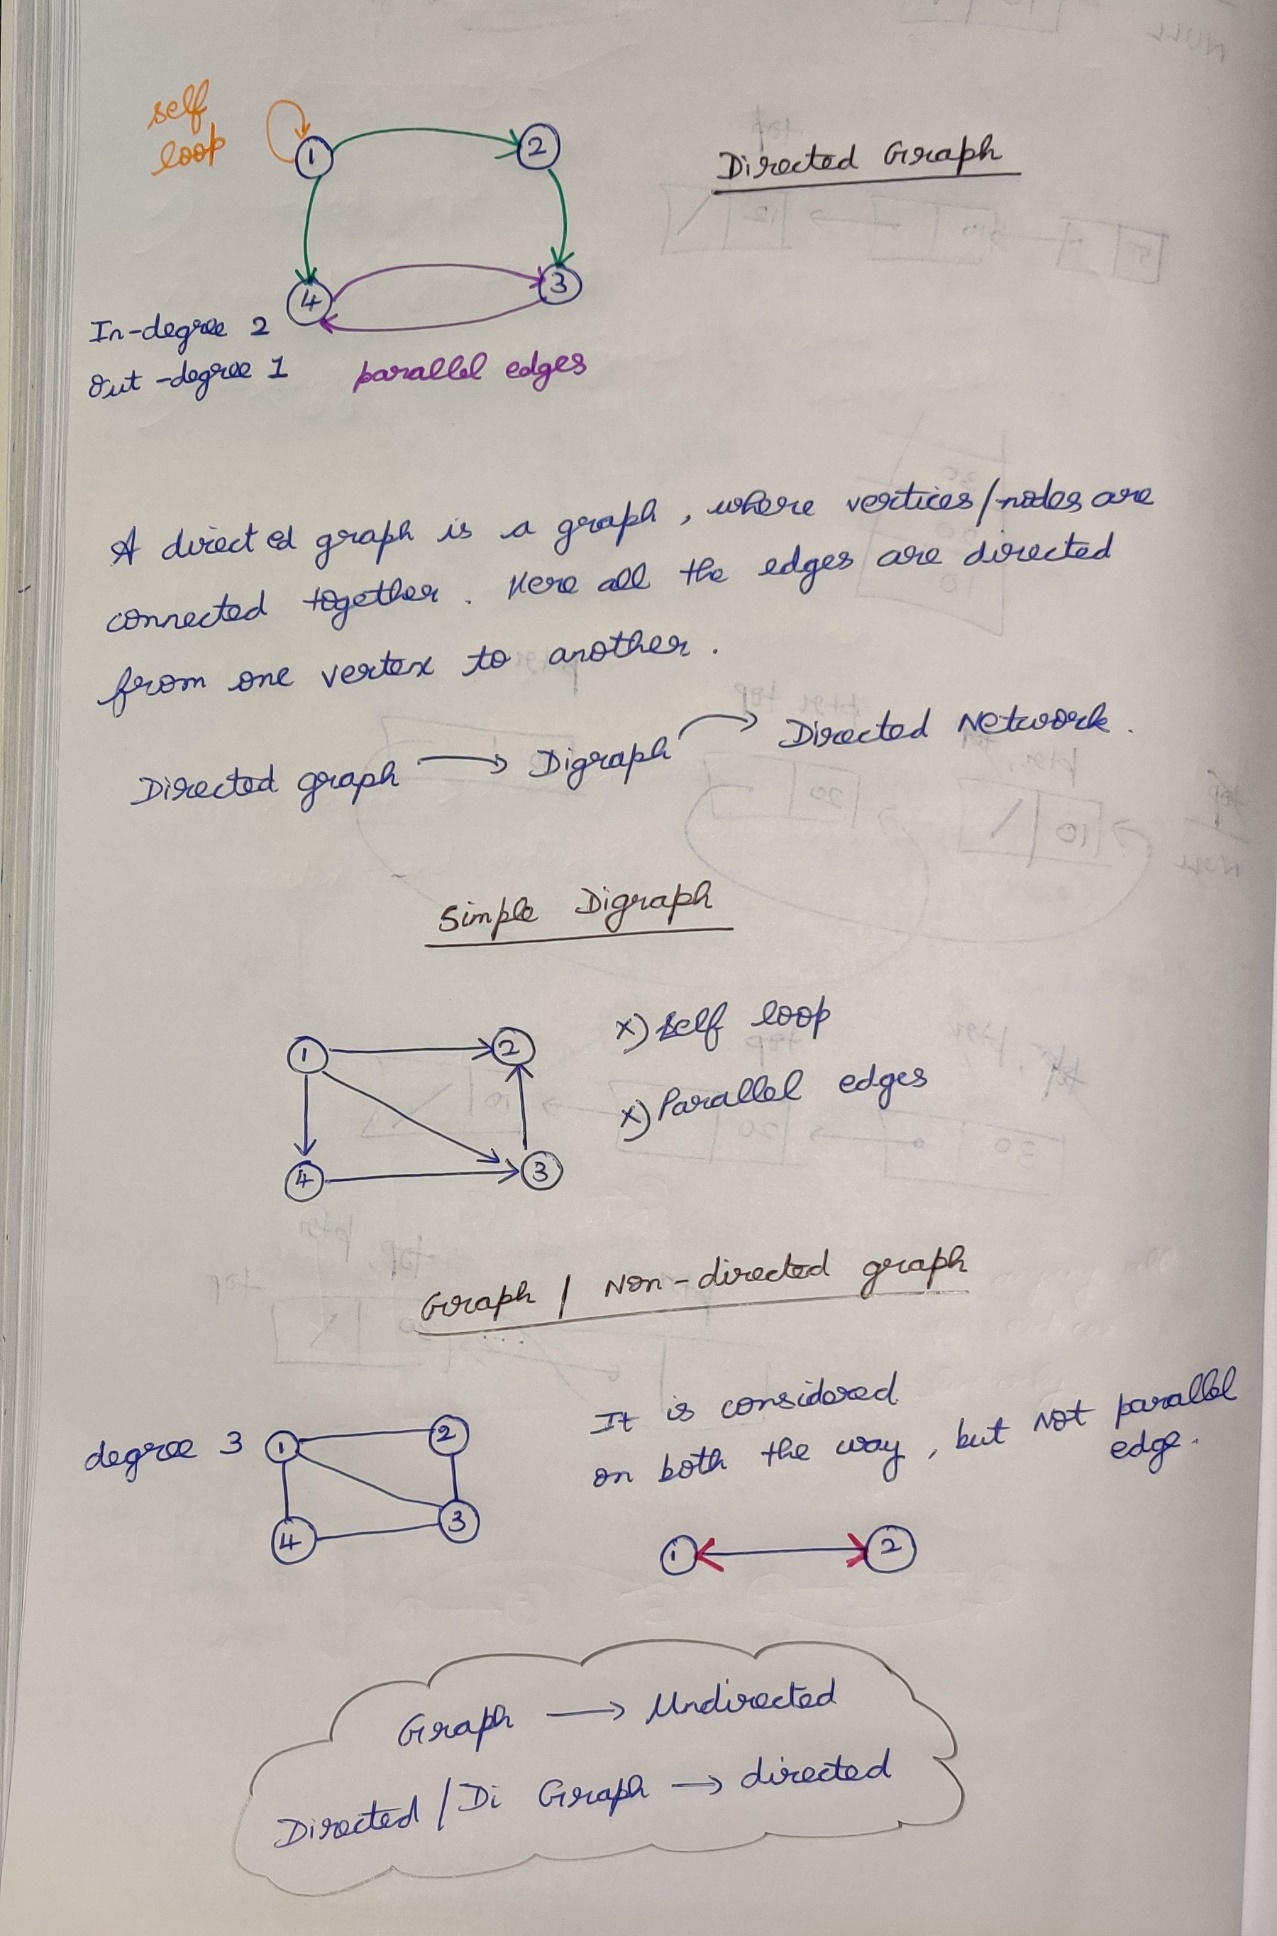 self
loop
1
2
Directed Graph
4
3
In-degree 2
Out-degree 1
parallel edges
A directed graph is a graph, where vertices/nodes are
connected together. Here all the edges are directed
from one vertex to another.
Directed graph → Digraph → Directed Network.
Simple Digraph
1
2
x) self loop
x) Parallel edges
4
3
Graph / Non-directed graph
degree 3
1
2
4
3
It is considered
on both the way, but not parallel
edge.
1
2
Graph → Undirected
Directed / Di Graph → directed